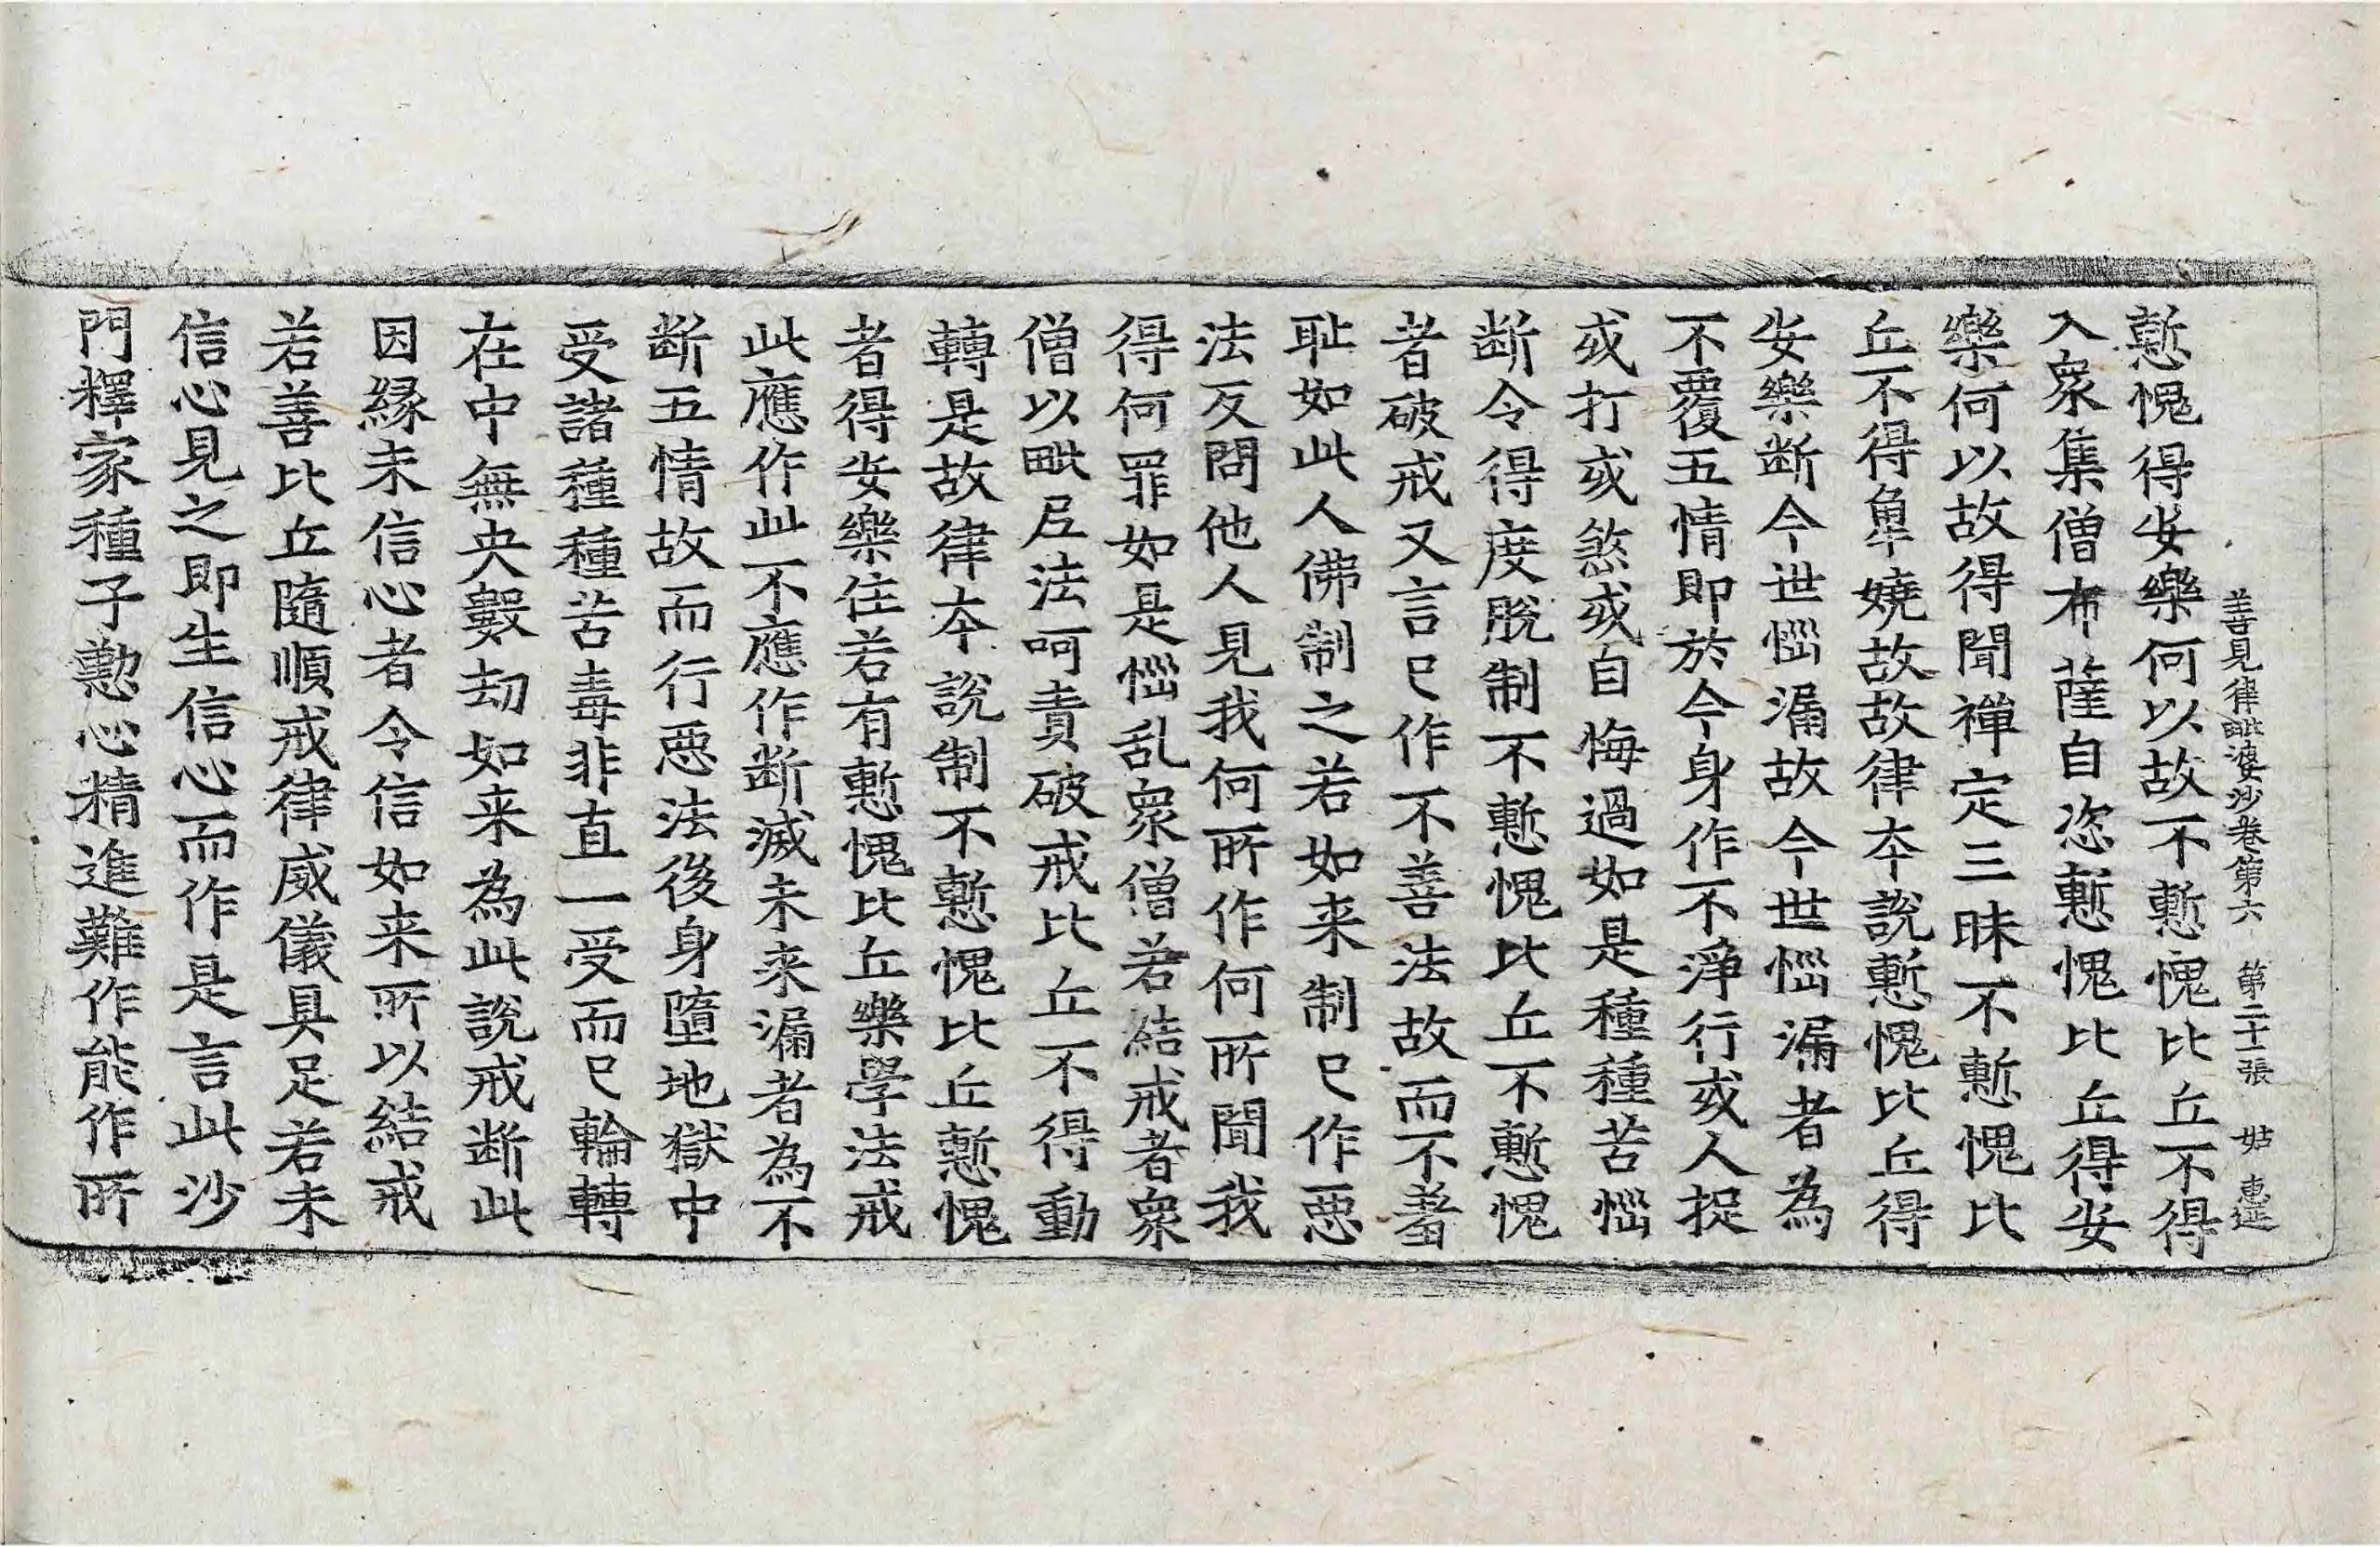 善見律毗婆沙卷第六 第二十一張 姑 惠延
慙愧得安樂何以故不慙愧比丘不得
入衆集僧布薩自恣慙愧比丘得安
樂何以故得聞禪定三昧不慙愧比
丘不得𠌫嬈故故律本說慙愧比丘得
安樂断今世惱漏故今世惱漏者為
不覆五情即於今身作不淨行或人捉
或打或煞或自悔過如是種種苦惱
断令得度脫制不慙愧比丘不慙愧
者破戒又言已作不善法故而不羞
耻如此人佛制之若如来制已作惡
法反問他人見我何所作何所聞我
得何罪如是惱乱衆僧若結戒者衆
僧以毗尼法呵責破戒比丘不得動
轉是故律本說制不慙愧比丘慙愧
者得安樂住若有慙愧比丘樂學法戒
此應作此不應作断滅未来漏者為不
断五情故而行惡法後身墮地獄中
受諸種種苦毒非直一受而已輪轉
在中無央數劫如来為此說戒断此
因緣未信心者令信如来所以結戒
若善比丘隨順戒律威儀具足若未
信心見之即生信心而作是言此沙
門釋家種子懃心精進難作能作所